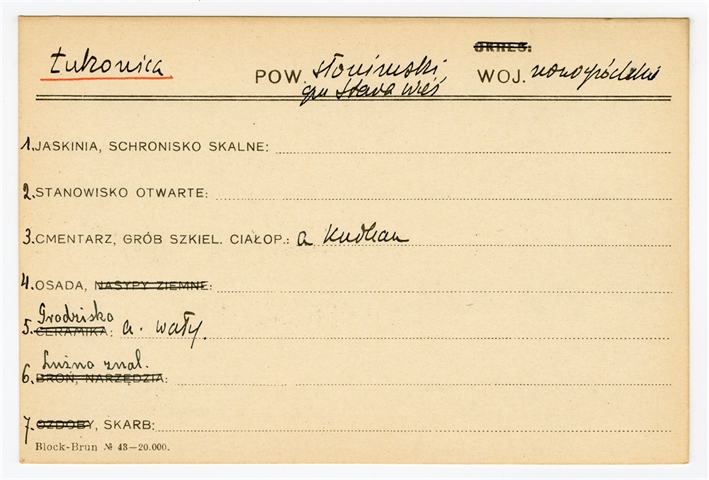 OKRES:
Łukonica POW. słonimski WOJ. nowogródzki
gm Stara Wieś
1. JASKINIA, SCHRONISKO SKALNE:
2. STANOWISKO OTWARTE:
3. CMENTARZ, GRÓB SZKIEL. CIAŁOP.: a Kurhan
4. OSADA, NASYPY ZIEMNE:
Grodzisko
5. CERAMIKA: a. wały.
Luźno znal.
6. BROŃ, NARZĘDZIA:
7. OZDOBY, SKARB:
Block-Brun № 43—20.000.